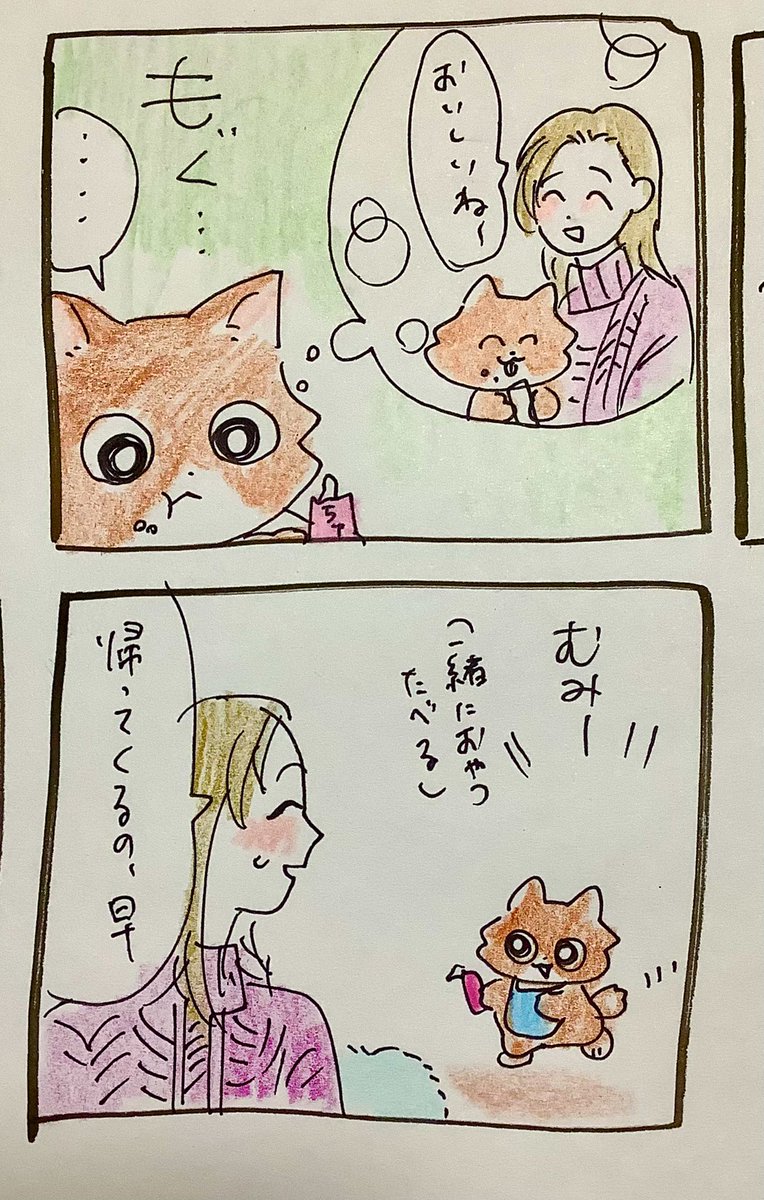 おいしいね~
もぐ…
‥‥
むみー
(一緒におやつ
たべる)
帰ってくるの、早